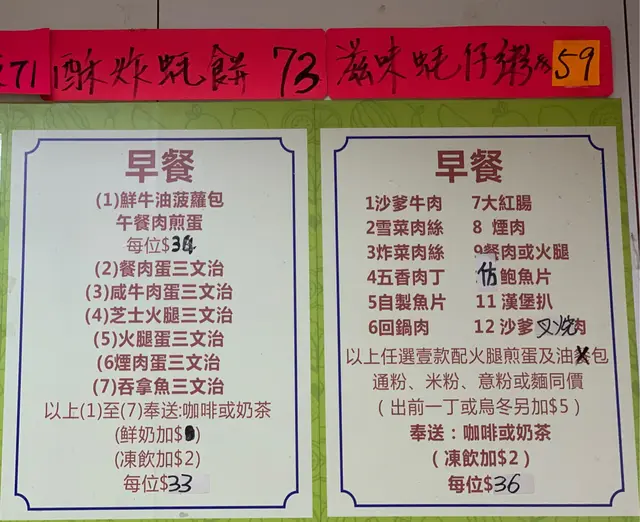 71
酥炸蚝餅 73
滋味蚝仔粥 59
早餐
(1)鮮牛油菠蘿包
午餐肉煎蛋
每位$34
(2)餐肉蛋三文治
(3)咸牛肉蛋三文治
(4)芝士火腿三文治
(5)火腿蛋三文治
(6煙肉蛋三文治
(7)吞拿魚三文治
以上(1)至(7)奉送:咖啡或奶茶
(鮮奶加$)
(凍飲加$2)
每位$33
早餐
1沙爹牛肉
2雪菜肉絲
3炸菜肉絲
4五香肉丁
5自製魚片
6回鍋肉
7大紅腸
8 煙肉
9餐肉或火腿
仿鮑魚片
11 漢堡扒
12 沙爹叉烧肉
以上任選壹款配火腿煎蛋及油包
通粉、米粉、意粉或麵同價
(出前一丁或烏冬另加$5)
奉送：咖啡或奶茶
(凍飲加$2)
每位$36